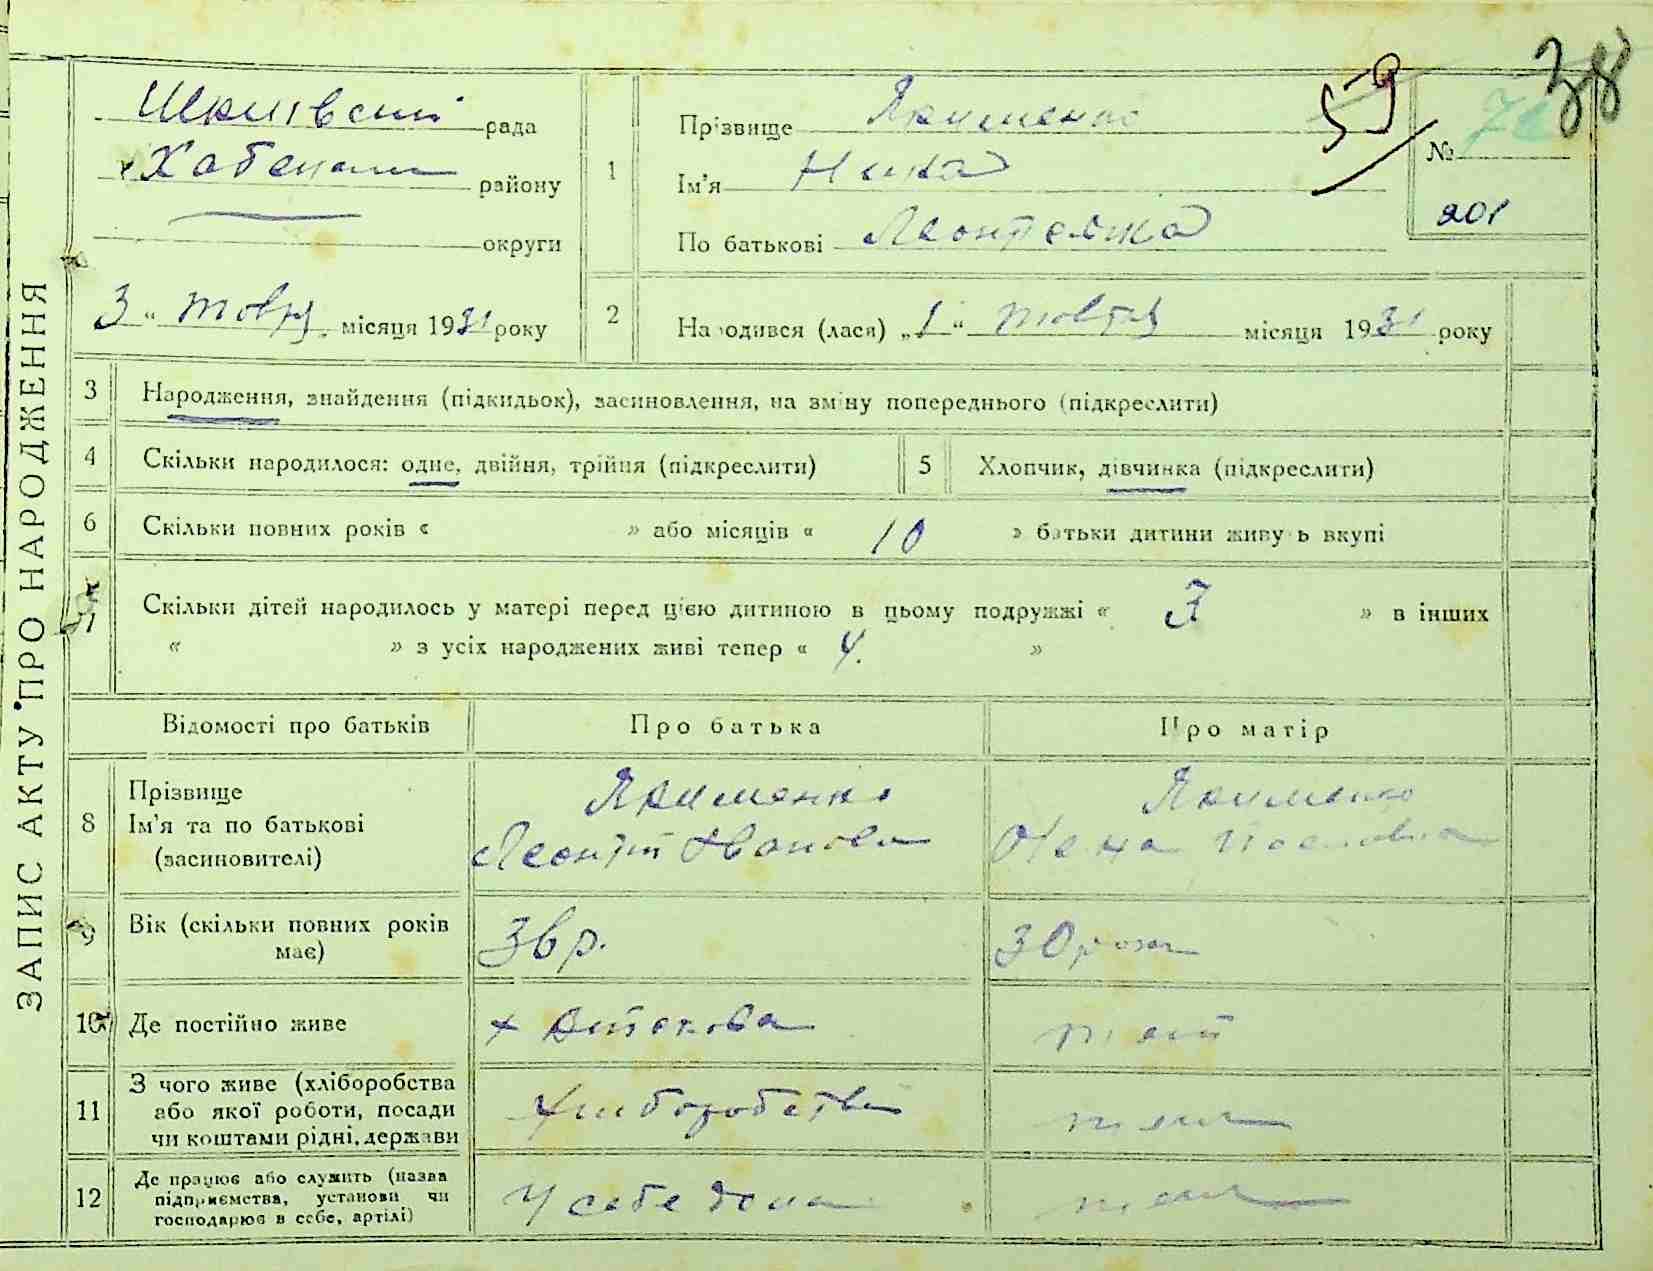 38
59
ЗАПИС АКТУ ПРО НАРОДЖЕННЯ
рада
району
округи
3 " товтя місяця 1931 року
1
Прізвище Якименко
Ім’я Ніна
По батькові
№
201
2
Народився (лася) „1“ товтя місяця 1931 року
3 Народження, знайдення (підкидьок), засиновлення, на зміну попереднього (підкреслити)
4 Скільки народилося: одне, двійня, трійня (підкреслити)
5 Хлопчик, дівчинка (підкреслити)
6 Скільки повних років « » або місяців « 10 » батьки дитини живуть вкупі
Скільки дітей народилось у матері перед цією дитиною в цьому подружжі « 3 » в інших
« » з усіх народжених живі тепер « 4. »
Відомості про батьків Про батька Про матір
8
Прізвище
Ім’я та по батькові
(засиновителі)
Якименко
Леонтій Іванов
Якименко
9
Вік (скільки повних років
має)
36 р.
30 роки
10 Де постійно живе
х
тежт
11
З чого живе (хліборобства
або якої роботи, посади
чи коштами рідні, держави
Хліборобство
теж
12
Де працює або служить (назва
підприємства, установи чи
господарює в себе, артілі)
У себе дома
теж